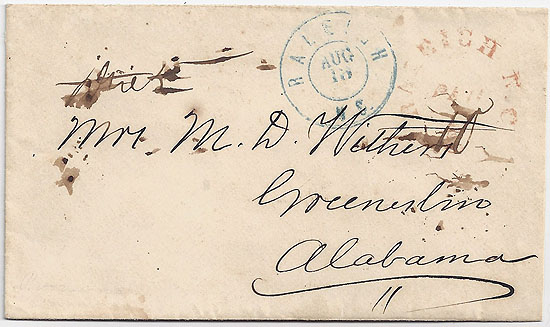 RALEIGH
AUG
15
N.C.
Mrs. M. D. Withers
Greensboro
Alabama